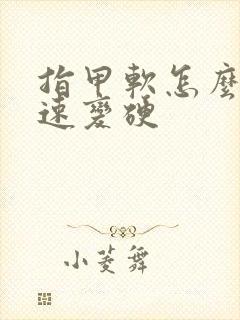 指甲軟怎麼
速變硬
小菱舞